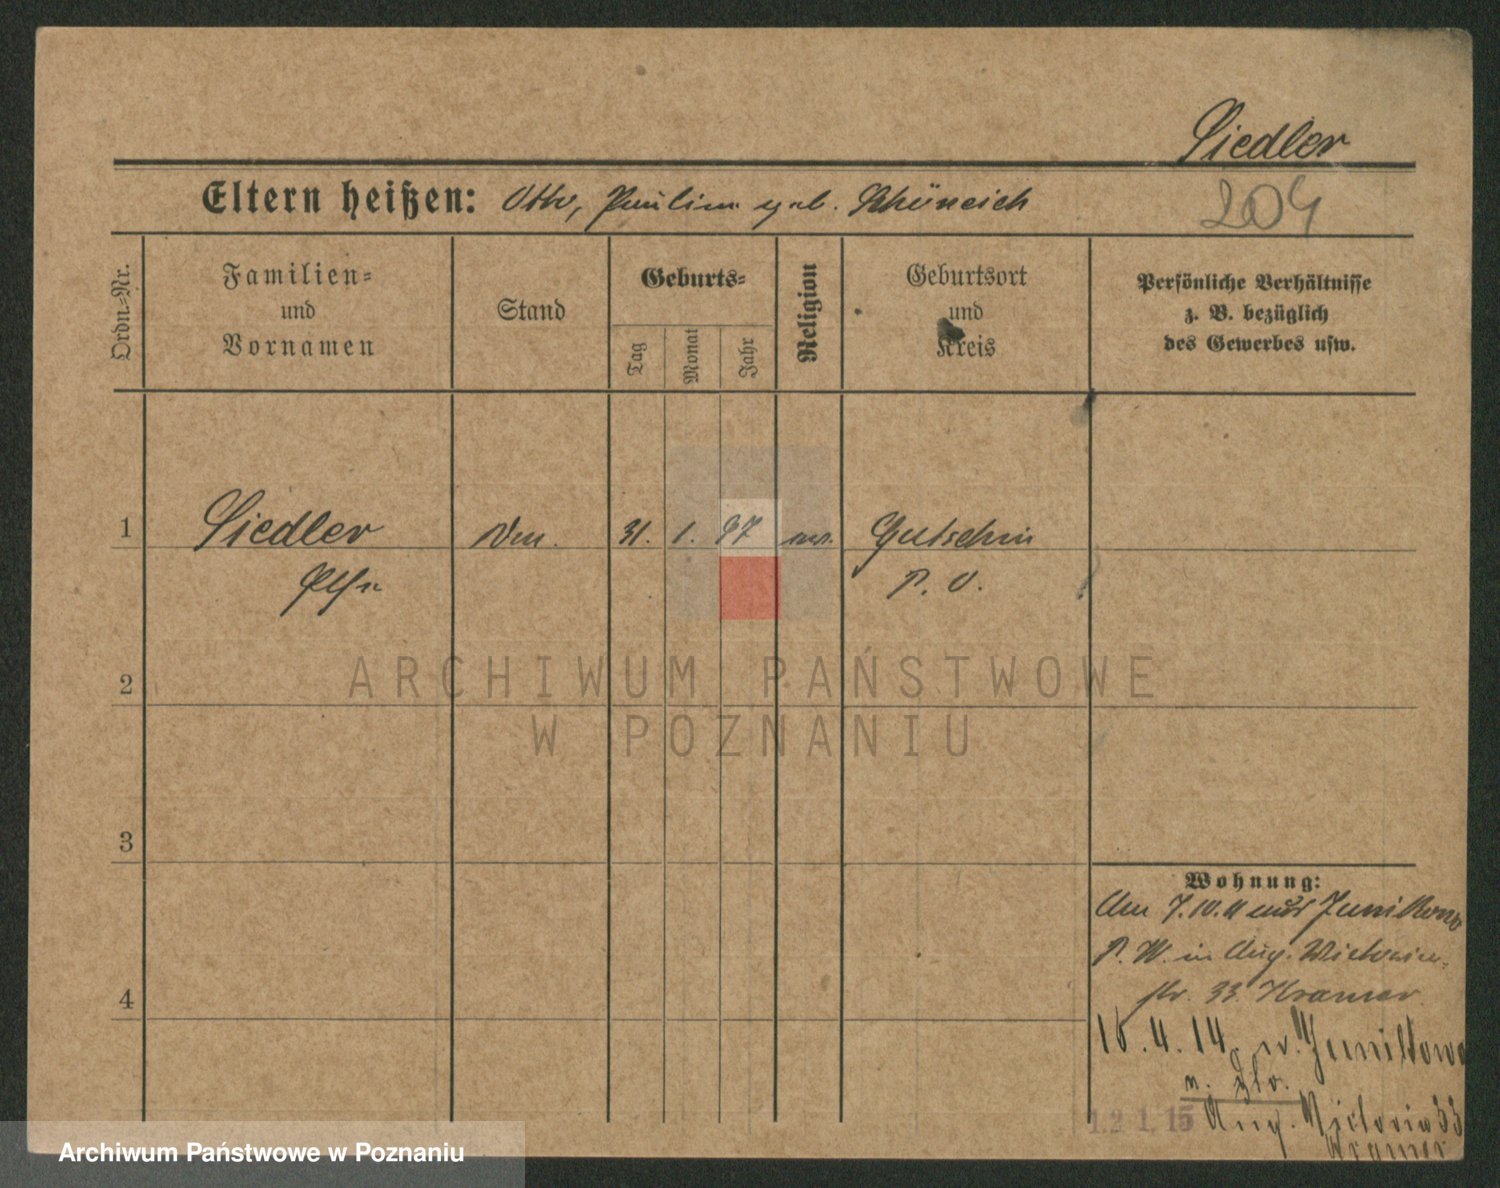 Siedler
Eltern heißen: Otto, Paulin geb. Schöneich
204
Ordn.-Nr.
Familien-
und
Vornamen
Stand
Geburts-
Tag
Monat
Jahr
Religion
Geburtsort
und
Kreis
Persönliche Verhältnisse
z. B. bezüglich
des Gewerbes usw.
1 Siedler 31. 1. 97 Gutschin
P. O.
2
ARCHIWUM PAŃSTWOWE
W POZNANIU
3
Wohnung:
Am 7.10.11 aus Junikowo
P. W. in Aug. Victoria-
str. 33 Kramer
4
16.4.14. v. Junikowo
n.
12.1.15 Aug. Victoria 33
Kramer
Archiwum Państwowe w Poznaniu